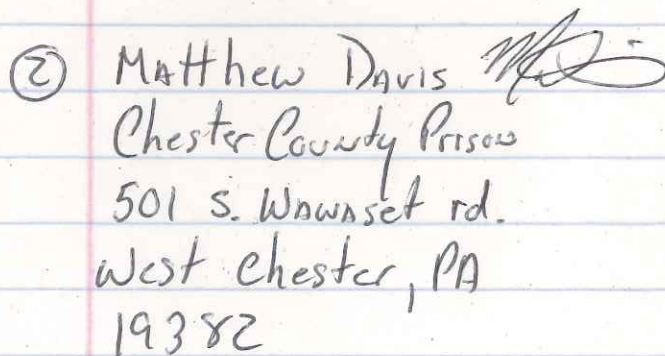 ② Matthew Davis
Chester County Prison
501 S. Wawaset rd.
West Chester, PA
19382